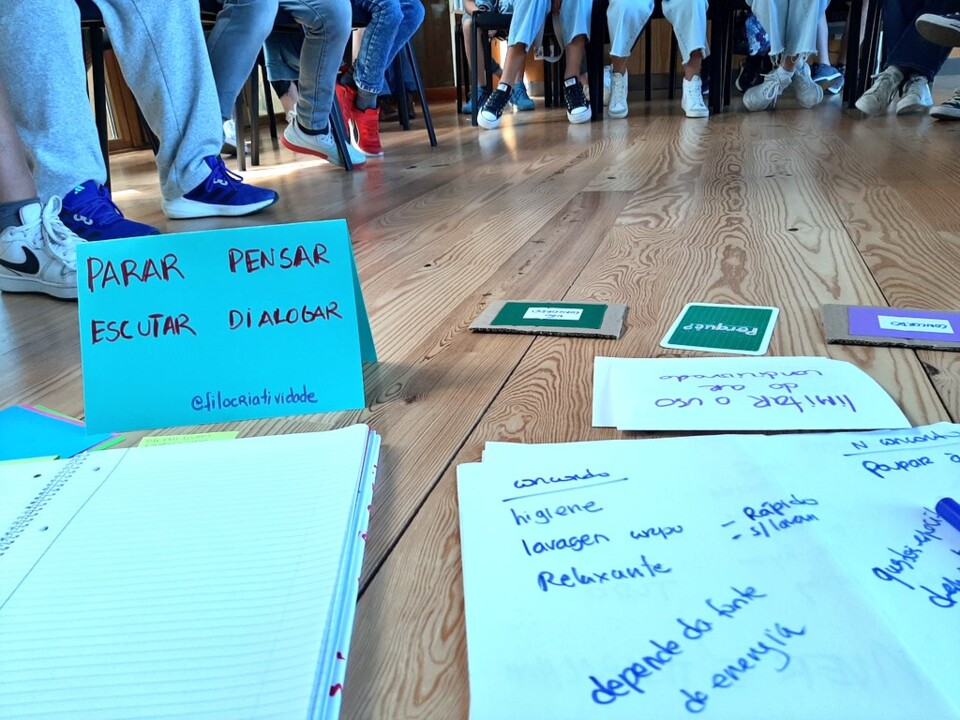 PARAR PENSAR
ESCUTAR DIALOGAR
@filocriatividade
NÃO
CONCORDO
Porquê?
CONCORDO
limitar o uso
do ar
condicionado
concordo
higiene
lavagem
- Rápido
- s/lavar
Relaxante
depende da fonte
de energia
Poupar